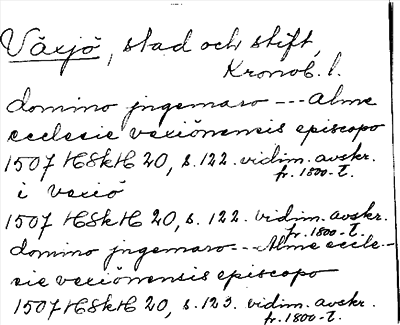 Växjö, stad och stift,
Kronob. l.
domino jngemaro --- Alme
ecclesie vexiönensis episcopo
1507 HSkH 20, s. 122. vidim. avskr.
fr. 1800-t.
i vexiö
1507 HSkH 20, s. 122. vidim. avskr.
fr. 1800-t.
domino jngemaro --- Alme eccle-
sie vexiönensis episcopo
1507 HSkH 20, s. 123. vidim. avskr.
fr. 1800-t.